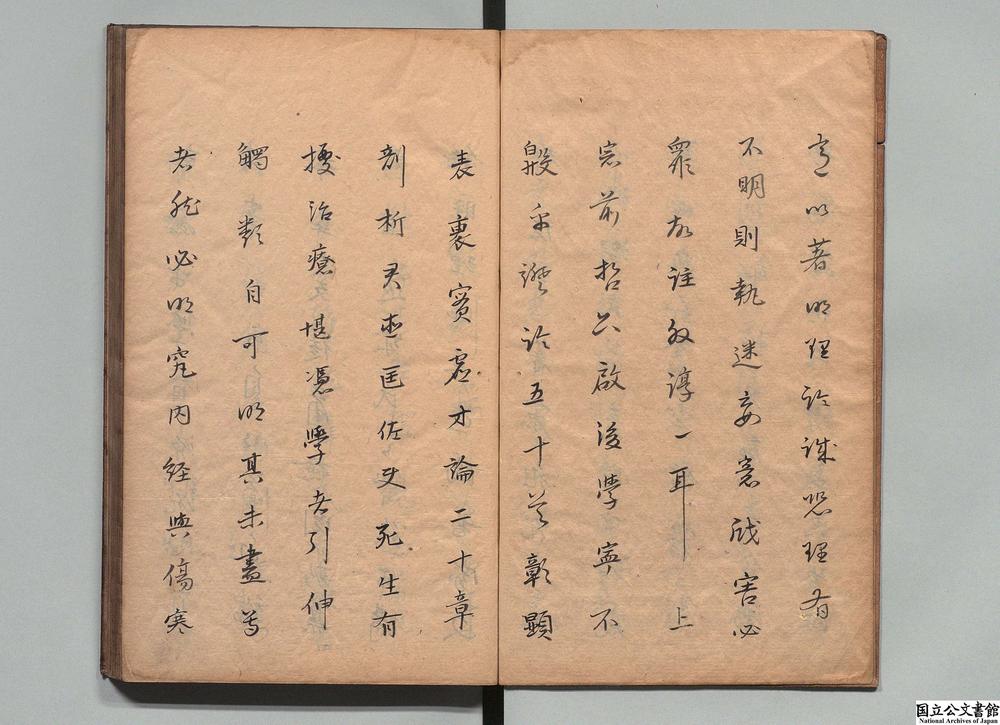 以著明理論誠恐理有
不明則執迷妄意戕害必
衆故註叙諄一耳上
宗前哲下啟後學寧不
殷乎證論五十首彰顯
表裏實虛方論二十章
剖析君臣匡佐使死生有
據治療有堪憑學者引伸
觸類自可明其未盡善
者然必明究内經與傷寒
国立公文書館
National Archives of Japan